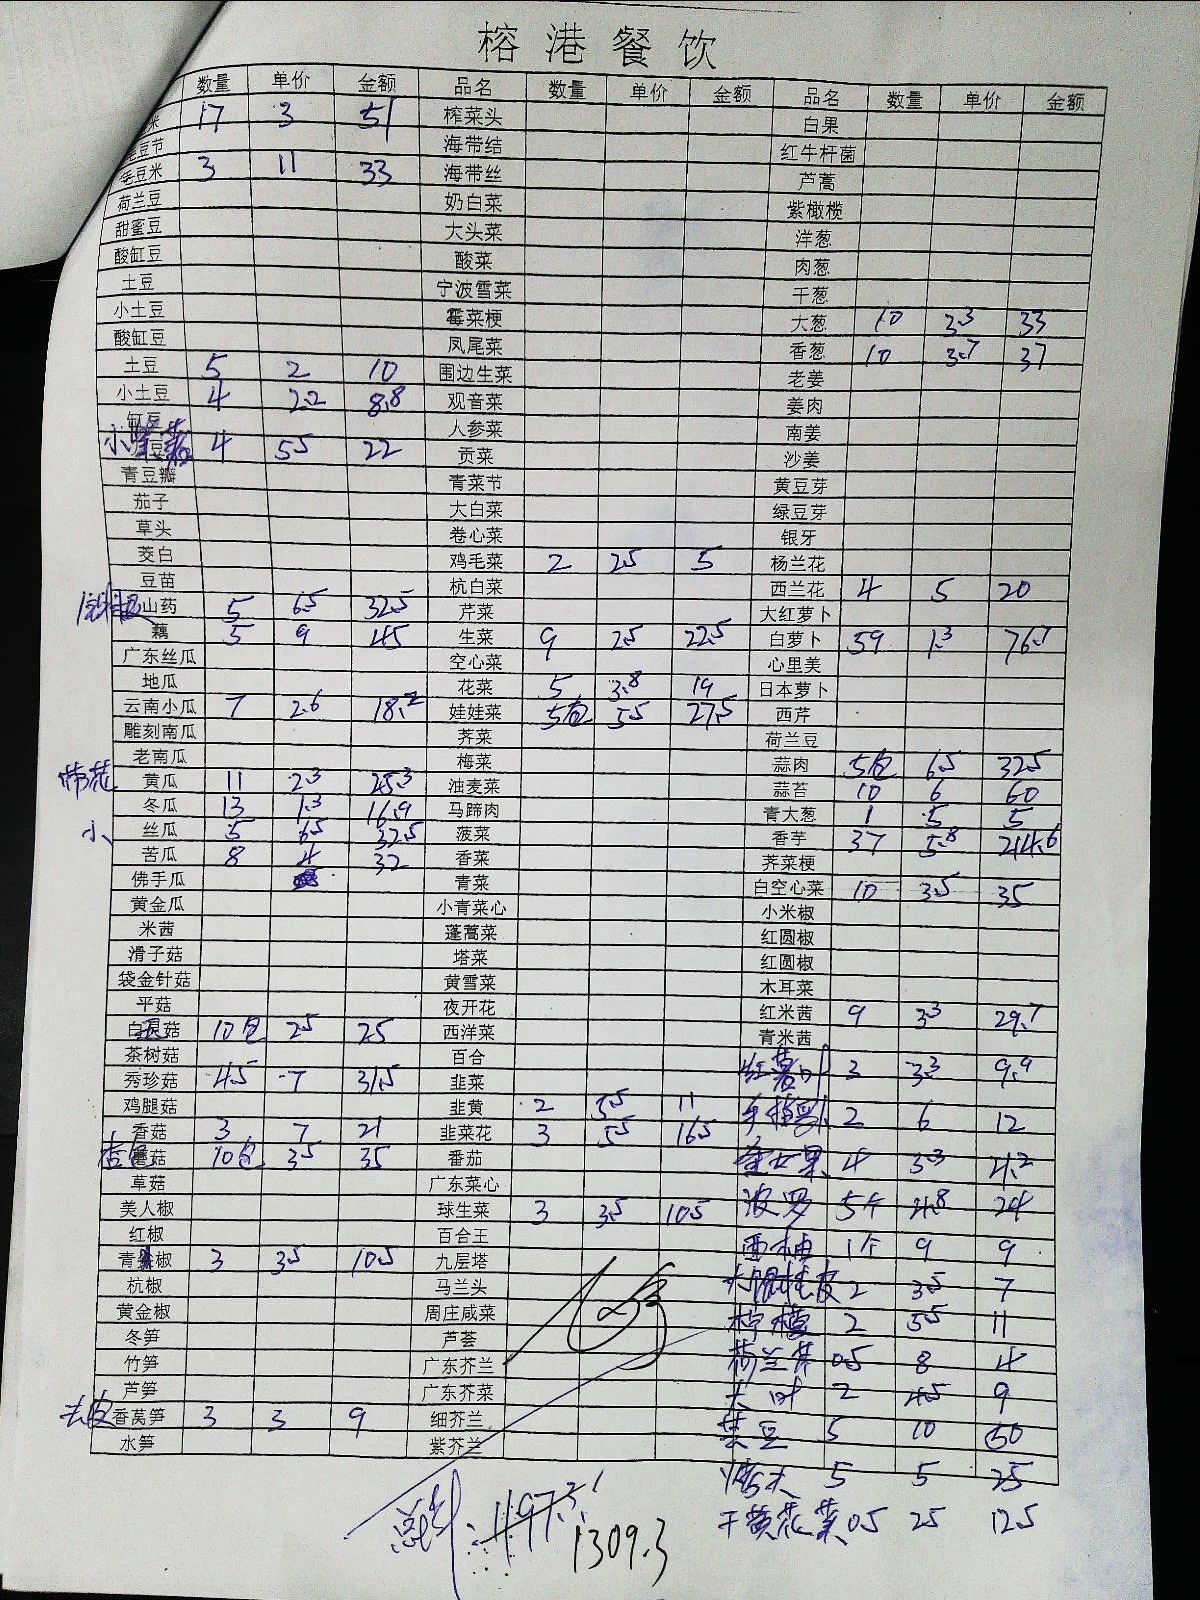 榕港餐饮
数量 单价 金额 品名 数量 单价 金额 品名 数量 单价 金额
米 17 3 51 榨菜头 白果
毛豆节 海带结 红牛杆菌
毛豆米 3 11 33 海带丝 芦蒿
荷兰豆 奶白菜 紫橄榄
甜蜜豆 大头菜 洋葱
酸缸豆 酸菜 肉葱
土豆 宁波雪菜 干葱
小土豆 霉菜梗 大葱 10 3.3 33
酸缸豆 凤尾菜 香葱 10 3.7 37
土豆 5 2 10 围边生菜 老姜
小土豆 4 2.2 8.8 观音菜 姜肉
缸豆 人参菜 南姜
小 4 5.5 22 贡菜 沙姜
青豆瓣 青菜节 黄豆芽
茄子 大白菜 绿豆芽
草头 卷心菜 银牙
茭白 鸡毛菜 2 2.5 5 杨兰花
豆苗 杭白菜 西兰花 4 5 20
山药 5 6.5 32.5 芹菜 大红萝卜
藕 5 9 45 生菜 9 2.5 22.5 白萝卜 59 1.3 76.7
广东丝瓜 空心菜 心里美
地瓜 花菜 5 3.8 19 日本萝卜
云南小瓜 7 2.6 18.2 娃娃菜 5包 5.5 27.5 西芹
雕刻南瓜 荠菜 荷兰豆
老南瓜 梅菜 蒜肉 5包 6.5 32.5
带花 黄瓜 11 2.3 25.3 油麦菜 蒜苔 10 6 60
冬瓜 13 1.3 16.9 马蹄肉 青大葱 1 5 5
小 丝瓜 5 6.5 32.5 菠菜 香芋 37 5.8 214.6
苦瓜 8 4 32 香菜 荠菜梗
佛手瓜 青菜 白空心菜 10 3.5 35
黄金瓜 小青菜心 小米椒
米茜 蓬蒿菜 红圆椒
滑子菇 塔菜 红圆椒
袋金针菇 黄雪菜 木耳菜
平菇 夜开花 红米茜 9 3.3 29.7
白玉菇 10包 2.5 25 西洋菜 青米茜
茶树菇 百合 红薯叶 3 3.3 9.9
秀珍菇 4.5 7 31.5 韭菜
鸡腿菇 韭黄 2 5.5 11 手指萝卜 2 6 12
香菇 3 7 21 韭菜花 3 5.5 16.5
杏包菇 10包 3.5 35 番茄 圣女果 4 5.3 21.2
草菇 广东菜心
美人椒 球生菜 3 3.5 10.5 波罗 5个 4.8 24
红椒 百合王 西柚 1个 9 9
青椒 3 3.5 10.5 九层塔
杭椒 马兰头 2 3.5 7
黄金椒 周庄咸菜 柠檬 2 5.5 11
冬笋 芦荟
竹笋 广东芥兰 荷兰芹 0.5 8 4
芦笋 广东芥菜 大叶 2 4.5 9
去皮 香莴笋 3 3 9 细芥兰 芸豆 5 10 50
水笋 紫芥兰
烤夫 5 5 25
干黄花菜 0.5 25 12.5
总计: 1197.3
1309.3